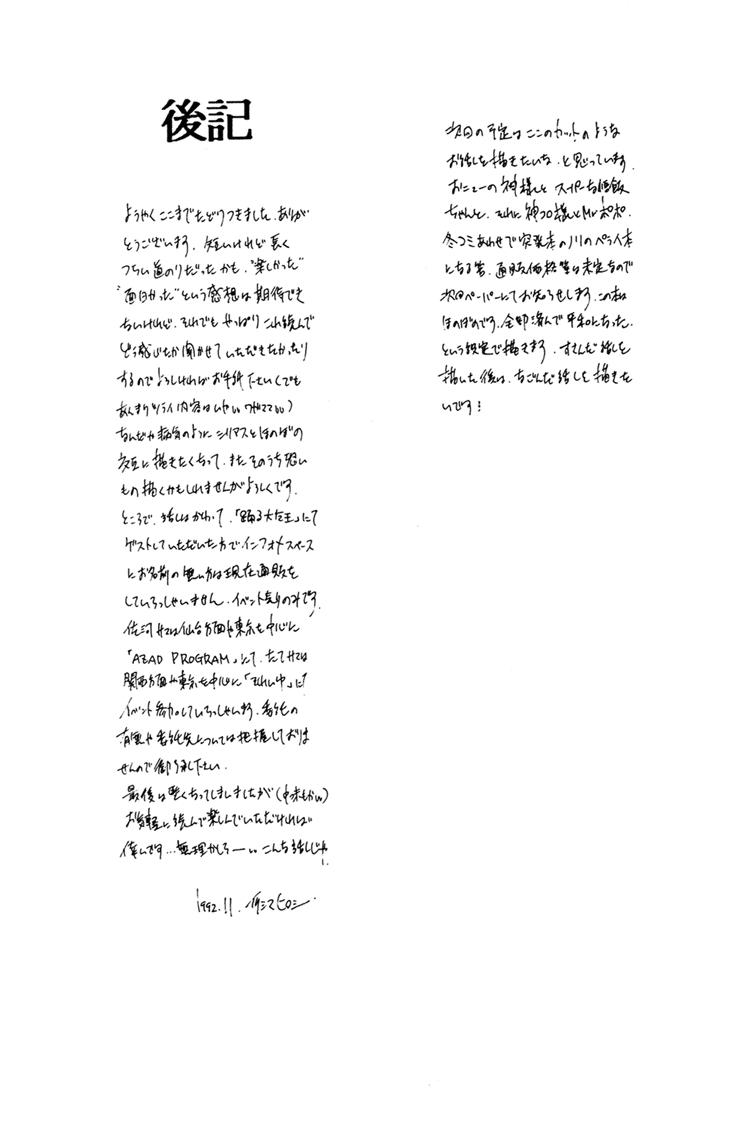 後記
ようやくここまでたどりつきました。ありが
とうございます。短いけれど長く
つらい道のりだったかも。"楽しかった"
"面白かった"という感想は期待でき
ないけれど、それでもやっぱりこれ読んで
どう感じたか聞かせていただきたかったり
するのでよろしければお手紙下さい(でも
あんまりツライ内容はいやいや
なんだか病気のようにシリアスとほのぼの
交互に描きたくなって、またそのうち恐い
もの描くかもしれませんがよろしくです。
ところで、話しはかわって、「踊る大在王」にて
ゲストしていただいた方でインフォメスペース
にお名前の無い方は現在通販を
していらっしゃいません。イベント売りのみです。
佐河サマは仙台方面や東京を中心に
「AZAD PROGRAM」にて、たてサマは
関西方面や東京を中心に「それい中」にて
イベント参加していらっしゃいます。委託の
有無や委託先については把握しておりま
せんので御了承下さい。
最後は堅くなってしまいましたが(中味もか)
お気軽に読んで楽しんでいただければ
倖いです…無理かしらーこんな話しじゃ
1992.11.
次回の予定はここのカットのような
お話しを描きたいな、と思っています。
おニューの神様と スーパーな悟飯
ちゃんと、それに神コロ様とMr.ポポ。
冬コミあわせで突発本のノリのペラい本
になる筈。通販価格等は未定なので
次回ペーパーにてお知らせします。この本は
ほのぼのです。全部済んで平和になった、
という設定で描きます。すさんだ話しを
描いた後は、なごんだ話しを描きた
いです!